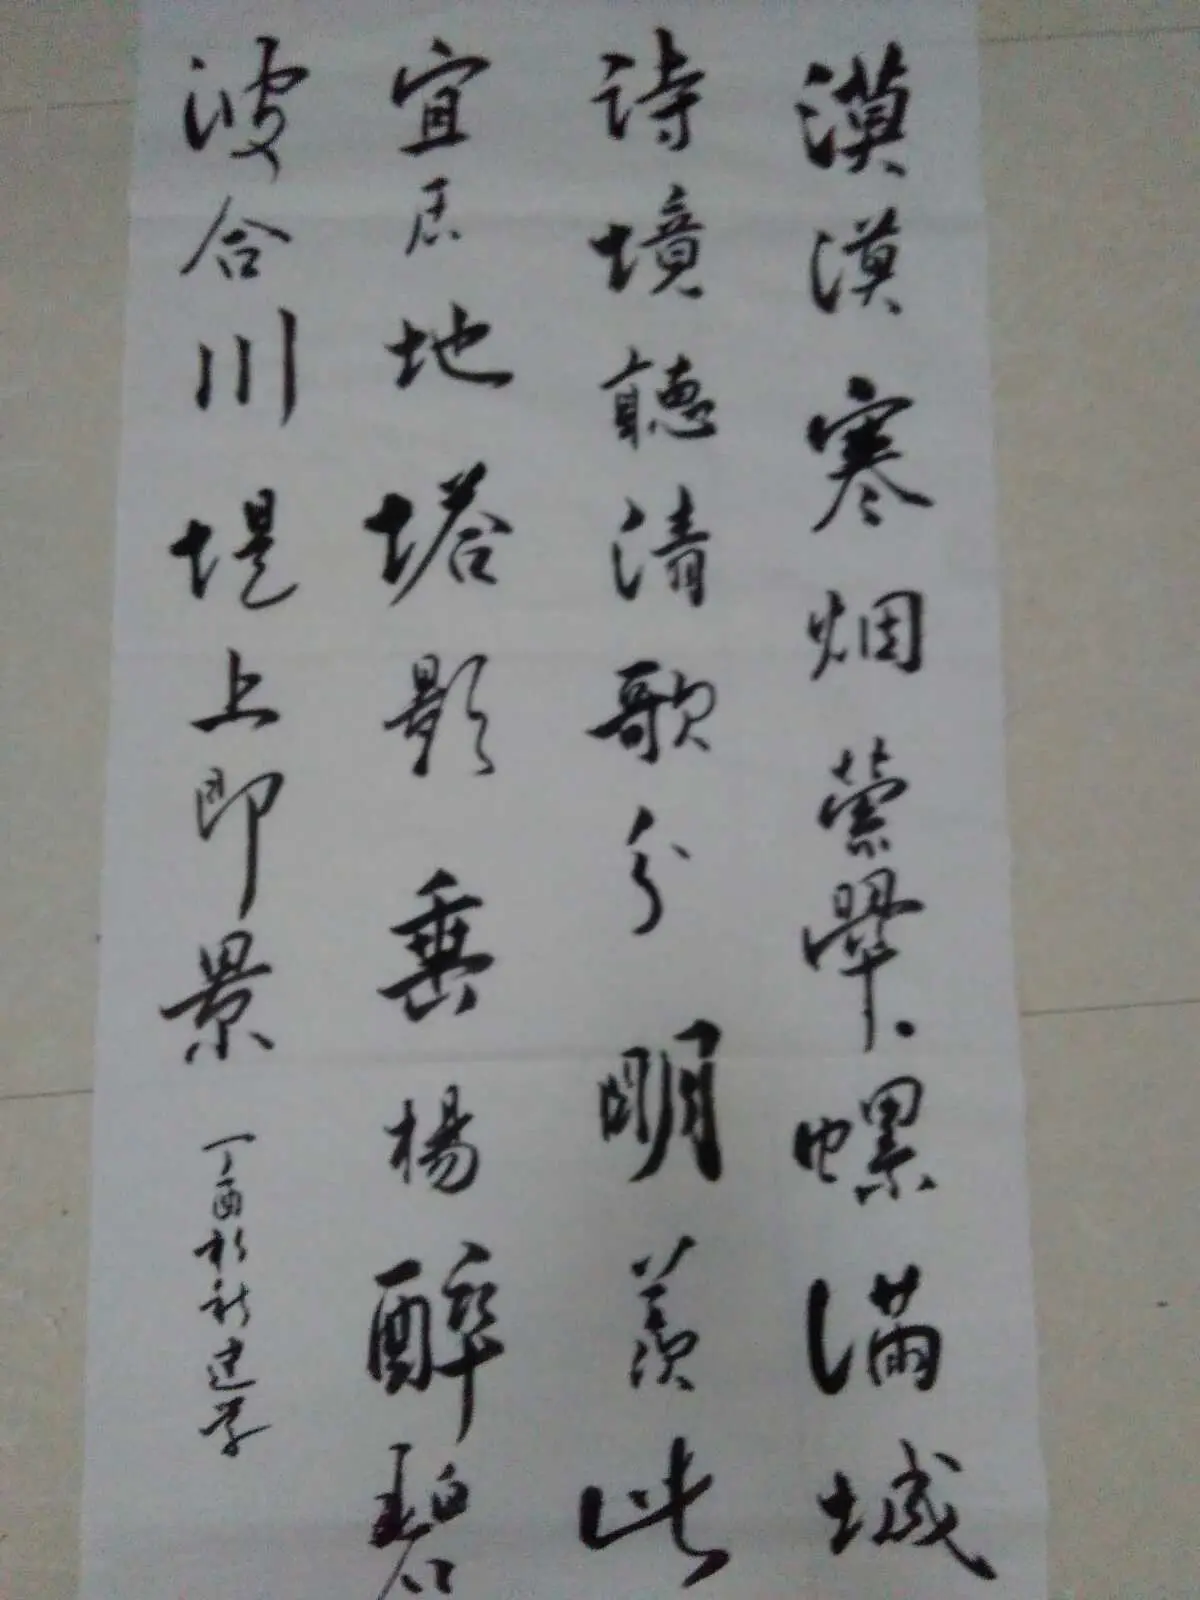 漠漠寒烟萦翠螺满城
诗境聽清歌分明羡此
宜居地塔影垂楊醉碧
波合川堤上即景
丁酉秋